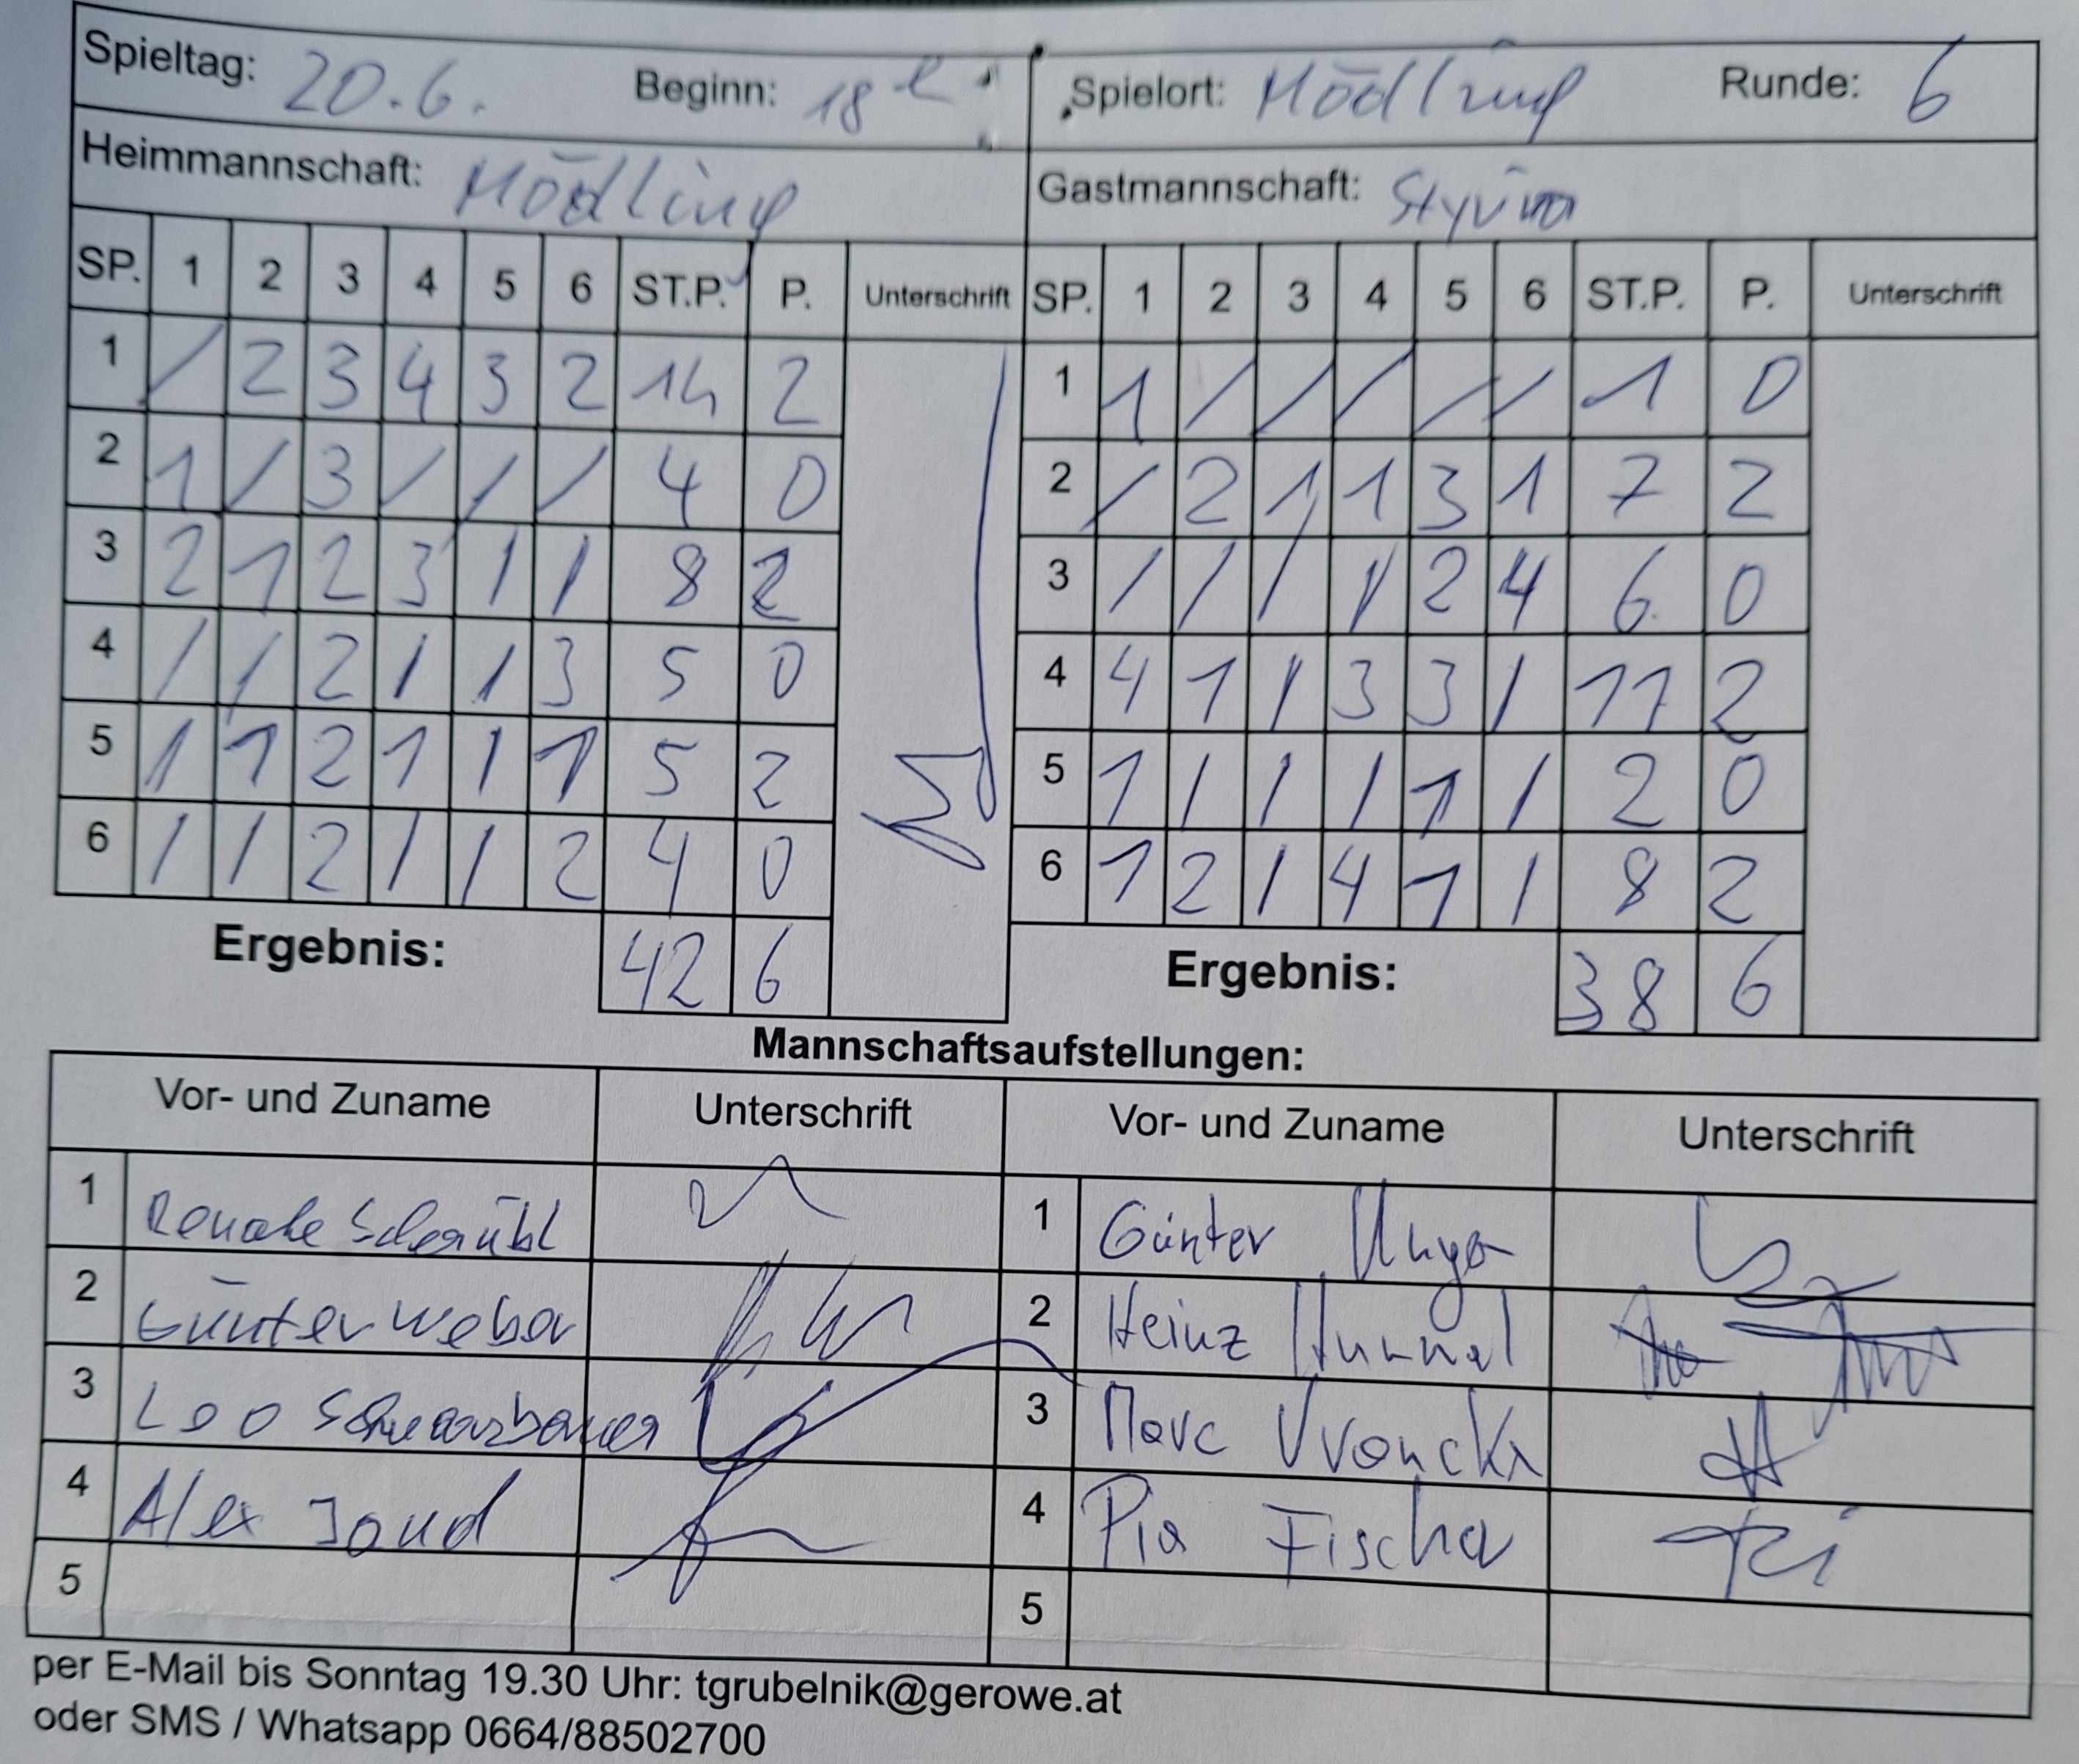 Spieltag: 20.6. Beginn: 18 h Spielort: Mödling Runde: 6
Heimmannschaft: Mödling Gastmannschaft:
SP. 1 2 3 4 5 6 ST.P. P. Unterschrift SP. 1 2 3 4 5 6 ST.P. P. Unterschrift
1 / 2 3 4 3 2 14 2 1 1 / / / / / 1 0
2 1 / 3 / / / 4 0 2 / 2 1 1 3 1 7 2
3 2 1 2 3 / / 8 2 3 / / / / 2 4 6 0
4 / / 2 / / 3 5 0 4 4 1 / 3 3 / 11 2
5 / 1 2 1 / 1 5 2 5 1 / / / 1 / 2 0
6 / / 2 / / 2 4 0 6 1 2 / 4 1 / 8 2
Ergebnis: 42 6 Ergebnis: 38 6
Mannschaftsaufstellungen:
Vor- und Zuname Unterschrift Vor- und Zuname Unterschrift
1 Renate 1 Günter Unger
2 Günter Weber 2 Heinz Hummel
3 Leo Schwarzbauer 3 Marc Vronckx
4 Alex 4 Pia Fischer
5 5
per E-Mail bis Sonntag 19.30 Uhr: tgrubelnik@gerowe.at
oder SMS / Whatsapp 0664/88502700